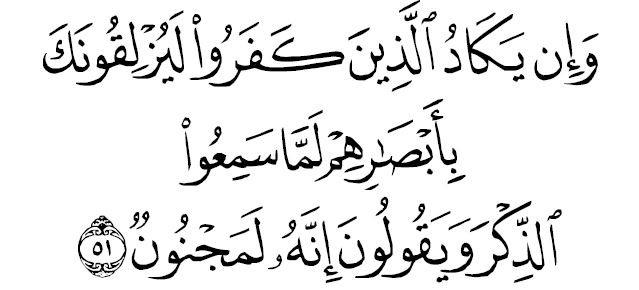 وَإِن يَكَادُ ٱلَّذِينَ كَفَرُوا۟ لَيُزْلِقُونَكَ
بِأَبْصَـٰرِهِمْ لَمَّا سَمِعُوا۟
ٱلذِّكْرَ وَيَقُولُونَ إِنَّهُۥ لَمَجْنُونٌ ٥١